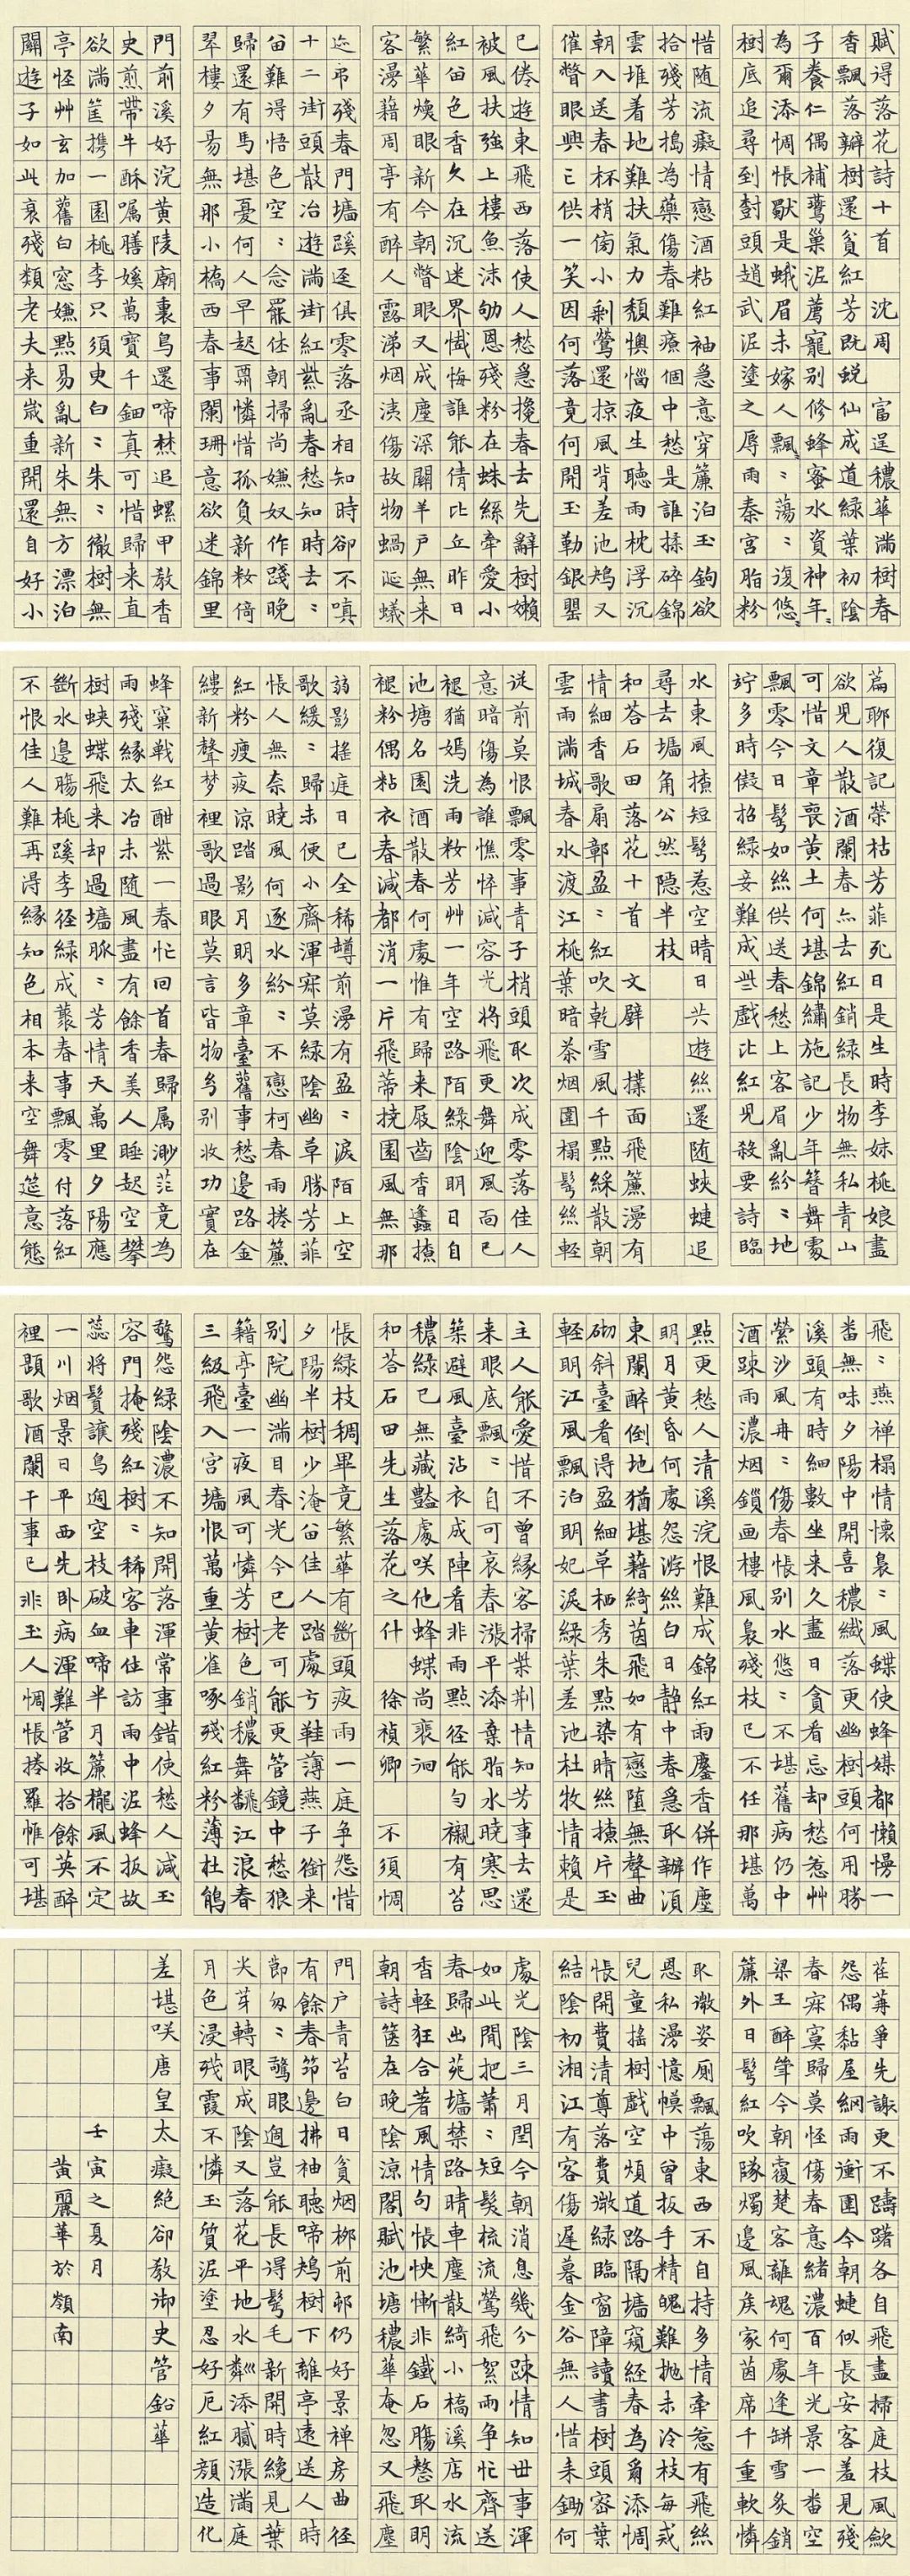 賦得落花詩十首 沈周 富逞穠華滿樹春
香飄落瓣樹還貧紅芳既蛻仙成道綠葉初陰
子養仁偶補鶯巢泥薦寵別修蜂蜜水資神年〻
為爾添惆悵歜是蛾眉未嫁人飄〻蕩〻復悠〻
樹底追尋到樹頭趙武泥塗之辱雨秦宮脂粉
惜隨流癡情戀酒粘紅袖急意穿簾泊玉鉤欲
拾殘芳搗為藥傷春難療個中愁是誰揉碎錦
雲堆着地難扶氣力頹懊惱夜生聽雨枕浮沉
朝入送春杯梢傷小剩鶯還掠風背差池鴆又
催瞥眼興亡供一笑因何落竟何開玉勒銀罌
已倦遊東飛西落使人愁急攙春去先辭樹嬾
被風扶強上樓魚沫劬恩殘粉在蛛絲牽愛小
紅留色香久在沉迷界懺悔誰能倩比丘昨日
繁華煥眼新今朝瞥眼又成塵深關羊戶無來
客漫藉周亭有醉人露涕烟洟傷故物蝸涎蟻
迹弔殘春門墻蹊逕俱零落丞相知時卻不嗔
十二街頭散冶遊滿街紅紫亂春愁知時去〻
留難得悟色空〻念罷休朝掃尚嫌奴作踐晚
歸還有馬堪憂何人早起霸憐惜孤負新妝倚
翠樓夕昜無那小橋西春事闌珊意欲迷錦里
門前溪好浣黃陵廟裏鳥還啼焚追螺甲教香
史煎帶牛酥囑膳媛萬寶千鈿真可惜歸來直
欲滿筐攜一園桃李只須臾白〻朱〻徹樹無
亭怪艸玄加舊白窗嫌點易亂新朱無方漂泊
關遊子如此衰殘類老夫來歲重開還自好小
篇聊復記榮枯芳菲死日是生時李妹桃娘盡
欲見人散酒闌春亦去紅銷綠長物無私青山
可惜文章喪黃土何堪錦繡施記少年簪舞處
飄零今日鬢如絲供送春愁上客眉亂紛〻地
竚多時儗招綠妾難成些戲比紅兒殺要詩臨
水東風撩短鬢惹空晴日共遊絲還隨蛺蝶追
尋去墻角公然隱半枝
和荅石田落花十首 文璧 撲面飛簾漫有
情細香歌扇鄣盈〻紅吹乾雪風千點綵散朝
雲雨滿城春水渡江桃葉暗茶烟圍榻鬢絲輕
從前莫恨飄零事青子梢頭取次成零落佳人
意暗傷為誰憔悴減容光將飛更舞迎風面已
褪猶嫣洗雨妝芳艸一年空路陌綠陰明日自
池塘名園酒散春何處惟有歸來屐齒香蠭撩
褪粉偶粘衣春減都消一片飛蒂撓園風無那
弱影搖庭日已全稀蹲前漫有盈〻淚陌上空
歌緩〻歸未便小齋渾寂莫綠陰幽草勝芳菲
悵人無奈曉風何逐水紛〻不戀柯春雨捲簾
紅粉瘦夜涼踏影月明多章臺舊事愁邊路金
縷新聲夢裡歌過眼莫言皆物幻別收功實在
蜂窠戰紅酣紫一春忙回首春歸屬渺茫竟為
雨殘緣太冶未隨風盡有餘香美人睡起空攀
樹蛺蝶飛來却過墻脈〻芳情天萬里夕陽應
斷水邊腸桃蹊李徑綠成叢春事飄零付落紅
不恨佳人難再得緣知色相本來空舞筵意態
飛〻燕禪榻情懷裊〻風蝶使蜂媒都懶慢一
番無味夕陽中開喜穠纖落更幽樹頭何用勝
溪頭有時細數坐來久盡日貪看忘却愁惹艸
縈沙風冉〻傷春悵別水悠〻不堪舊病仍中
酒踈雨濃烟鎖画樓風裊殘枝已不任那堪萬
點更愁人清溪浣恨難成錦紅雨塵香併作塵
明月黃昏何處怨游絲白日靜中春急取辦湏
東闌醉倒地猶堪藉綺茵飛如有戀墮無聲曲
砌斜臺看得盈細草栖秀朱點染晴絲撩片玉
輕明江風飄泊明妃淚綠葉差池杜牧情賴是
主人能愛惜不曾緣客掃柴荊情知芳事去還
來眼底飄〻自可哀春漲平添棄脂水曉寒思
築避風臺沾衣成陣看非雨點徑能勻襯有苔
穠綠已無藏豔處咲他蜂蝶尚裵徊
和荅石田先生落花之什 徐禎卿 不須惆
悵綠枝稠畢竟繁華有斷頭夜雨一庭爭怨惜
夕陽半樹少淹留佳人踏處弓鞋薄燕子銜來
別院幽滿目春光今已老可能更管鏡中愁狼
籍亭臺一夜風可憐芳樹色銷穠舞飜江浪春
三級飛入宮墻恨萬重黃雀啄殘紅粉薄杜鵑
驚怨綠陰濃不知開落渾常事錯使愁人減玉
容門掩殘紅樹〻稀客車住訪雨中泥蜂扳故
蕊將鬢讓鳥過空枝破血啼半月簾櫳風不定
一川烟景日平西先臥病渾難管收拾餘英醉
裡題歌酒闌干事已非玉人惆悵捲羅帷可堪
荏苒爭先謝更不躊躇各自飛盡掃庭枝風歛
怨偶黏屋網雨衝圍今朝蝶似長安客羞見殘
春寂寞歸莫怪傷春意緒濃百年光景一番空
梁王醉筆今朝覆楚客離魂何處逢缾雪炙銷
簾外日髩紅吹隊燭邊風矦家茵席千重軟憐
取激姿廁飄蕩東西不自持多情牽惹有飛絲
恩私漫憶幙中曾扳手精魄難拋未冷枝每戒
兒童搖樹戲空煩道路隔墻窺經春為爾添惆
悵開費清尊落費激綠臨窗障讀書樹頭密葉
結陰初湘江有客傷遲暮金谷無人惜耒鋤何
處光陰三月閏今朝消息幾分踈情知世事渾
如此閒把蕭〻短髮梳流鶯飛絮雨爭忙齊送
春歸出苑墻禁路晴車塵散綺小橋溪店水流
香輕狂合著風情句悵怏慚非鐵石腸愁取明
朝詩篋在晚陰涼閣賦池塘穠華奄忽又飛塵
門戶青苔白日貧烟柳前邨仍好景禪房曲徑
有餘春笻邊拂袖聽啼鴆樹下離亭遠送人時
節匆〻驚眼過豈能長得髩毛新開時纔見葉
尖芽轉眼成陰又落花平地水粼添膩漲滿庭
月色浸殘霞不憐玉質泥塗忍好卮紅顏造化
差堪咲唐皇太癡絕卻教御史管鉛華
壬寅之夏月
黃麗華於嶺南